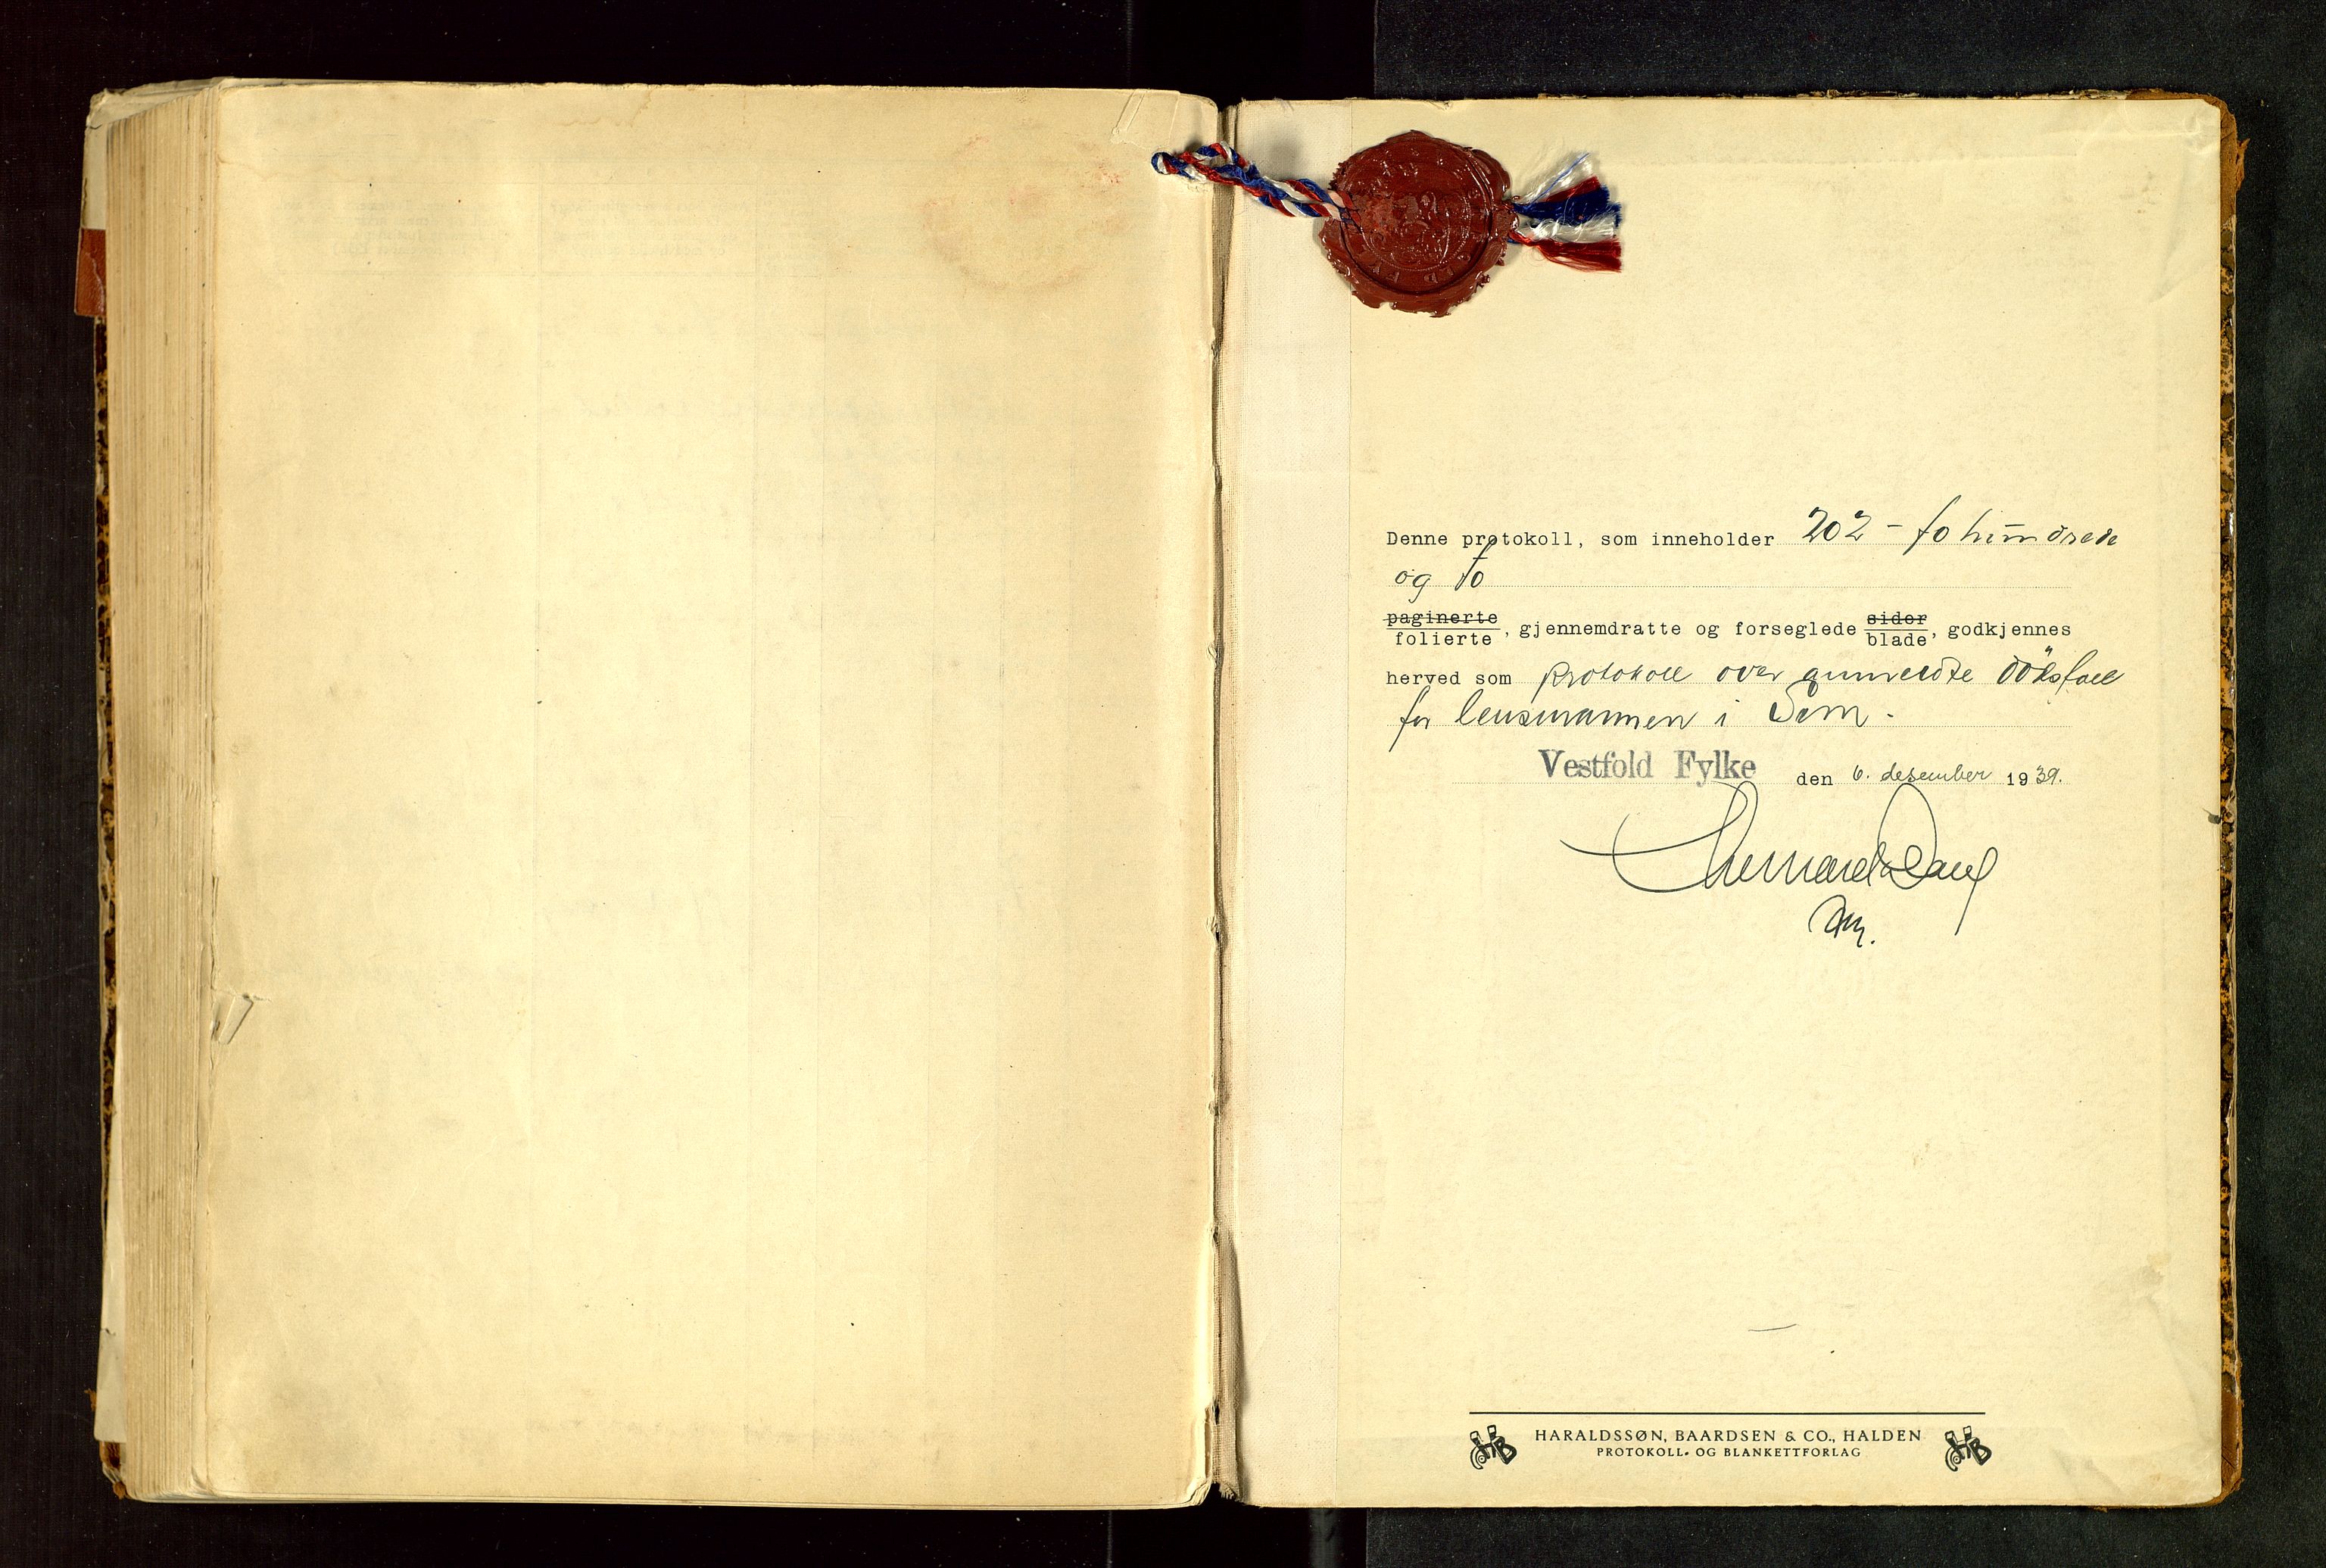 Denne protokoll, som inneholder 202 - to hundrede
og to
paginerte
folierte, gjennemdratte og forseglede sider
blade, godkjennes
herved som protokoll over anmeldte dödsfall
for lensmannen i Sem.
Vestfold Fylke den 6. desember 1939.
HARALDSSØN, BAARDSEN & CO., HALDEN
PROTOKOLL- OG BLANKETTFORLAG